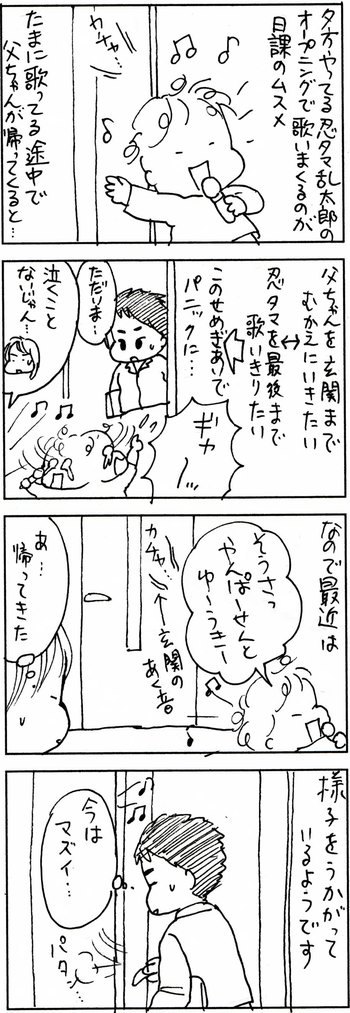 夕方やってる忍タマ乱太郎の
オープニングで歌いまくるのが
日課のムスメ
カチャ…
たまに歌ってる途中で
父ちゃんが帰ってくると…
父ちゃんを玄関まで
むかえにいきたい
↕
忍タマを最後まで
歌いきりたい
このせめぎあいで
パニックに…
ギャーッ
ただいま…
泣くこと
ないじゃん…
なので最近は
そうさっ
やんぱーせんと
ゆーうきー
カチャ…
←玄関の
あく音
あ…
帰ってきた
様子をうかがって
いるようです
今は
マズイ…
パタン